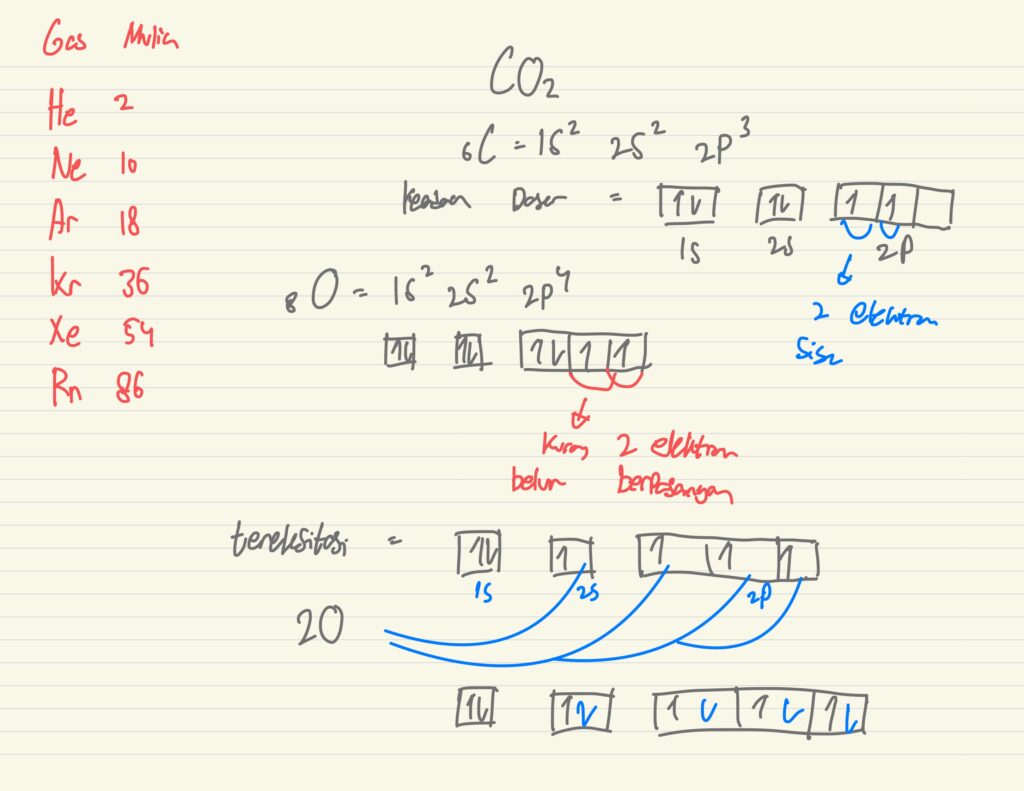 Gas Mulia
He 2
Ne 10
Ar 18
Kr 36
Xe 54
Rn 86
CO₂
₆C = 1s² 2s² 2p³
Keadaan Dasar = 1s 2s 2p
2 elektron
sisa
₈O = 1s² 2s² 2p⁴
Kurang 2 elektron
belum berpasangan
tereksitasi =
1s 2s 2p
2O